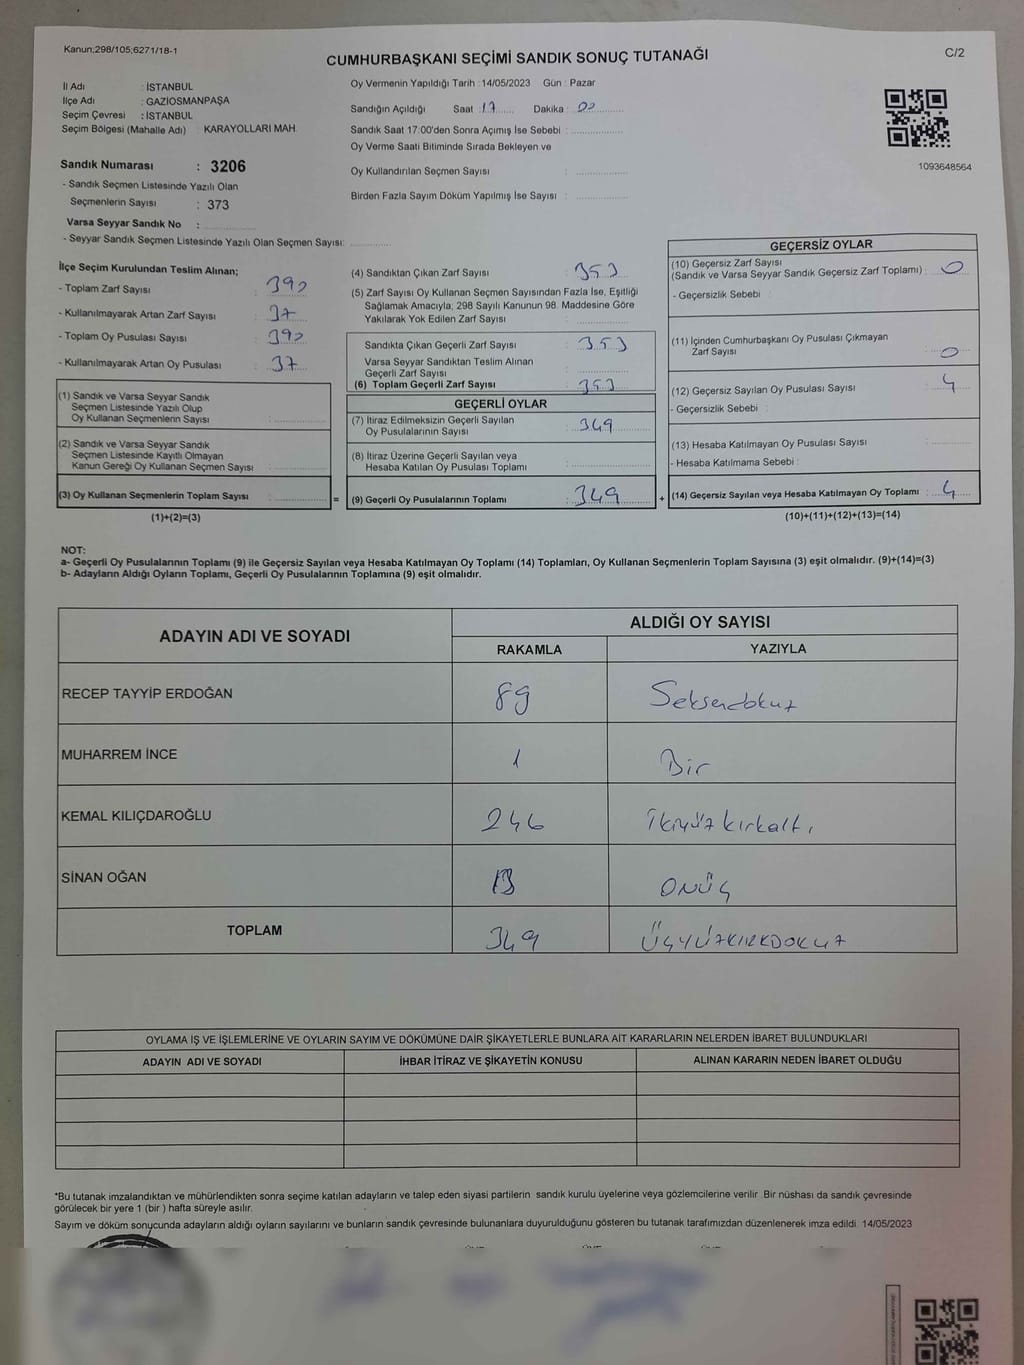 Kanun;298/105;6271/18-1
CUMHURBAŞKANI SEÇİMİ SANDIK SONUÇ TUTANAĞI
C/2
İl Adı : İSTANBUL
İlçe Adı : GAZİOSMANPAŞA
Seçim Çevresi : İSTANBUL
Seçim Bölgesi (Mahalle Adı) KARAYOLLARI MAH.
Sandık Numarası : 3206
- Sandık Seçmen Listesinde Yazılı Olan
Seçmenlerin Sayısı : 373
Varsa Seyyar Sandık No :
- Seyyar Sandık Seçmen Listesinde Yazılı Olan Seçmen Sayısı:
Oy Vermenin Yapıldığı Tarih : 14/05/2023 Gün : Pazar
Sandığın Açıldığı Saat : 17 Dakika : 00
Sandık Saat 17:00'den Sonra Açımış İse Sebebi :
Oy Verme Saati Bitiminde Sırada Bekleyen ve
Oy Kullandırılan Seçmen Sayısı :
Birden Fazla Sayım Döküm Yapılmış İse Sayısı :
1093648564
İlçe Seçim Kurulundan Teslim Alınan;
- Toplam Zarf Sayısı : 390
- Kullanılmayarak Artan Zarf Sayısı : 37
- Toplam Oy Pusulası Sayısı : 390
- Kullanılmayarak Artan Oy Pusulası : 37
(1) Sandık ve Varsa Seyyar Sandık
Seçmen Listesinde Yazılı Olup
Oy Kullanan Seçmenlerin Sayısı :
(2) Sandık ve Varsa Seyyar Sandık
Seçmen Listesinde Kayıtlı Olmayan
Kanun Gereği Oy Kullanan Seçmen Sayısı :
(3) Oy Kullanan Seçmenlerin Toplam Sayısı :
(1)+(2)=(3)
(4) Sandıktan Çıkan Zarf Sayısı : 353
(5) Zarf Sayısı Oy Kullanan Seçmen Sayısından Fazla İse, Eşitliği
Sağlamak Amacıyla; 298 Sayılı Kanunun 98. Maddesine Göre
Yakılarak Yok Edilen Zarf Sayısı :
Sandıkta Çıkan Geçerli Zarf Sayısı : 353
Varsa Seyyar Sandıktan Teslim Alınan
Geçerli Zarf Sayısı :
(6) Toplam Geçerli Zarf Sayısı : 353
GEÇERLİ OYLAR
(7) İtiraz Edilmeksizin Geçerli Sayılan
Oy Pusulalarının Sayısı : 349
(8) İtiraz Üzerine Geçerli Sayılan veya
Hesaba Katılan Oy Pusulası Toplamı :
= (9) Geçerli Oy Pusulalarının Toplamı : 349 +
GEÇERSİZ OYLAR
(10) Geçersiz Zarf Sayısı
(Sandık ve Varsa Seyyar Sandık Geçersiz Zarf Toplamı) : 0
- Geçersizlik Sebebi :
(11) İçinden Cumhurbaşkanı Oy Pusulası Çıkmayan
Zarf Sayısı : 0
(12) Geçersiz Sayılan Oy Pusulası Sayısı : 4
- Geçersizlik Sebebi :
(13) Hesaba Katılmayan Oy Pusulası Sayısı :
- Hesaba Katılmama Sebebi :
(14) Geçersiz Sayılan veya Hesaba Katılmayan Oy Toplamı : 4
(10)+(11)+(12)+(13)=(14)
NOT:
a- Geçerli Oy Pusulalarının Toplamı (9) ile Geçersiz Sayılan veya Hesaba Katılmayan Oy Toplamı (14) Toplamları, Oy Kullanan Seçmenlerin Toplam Sayısına (3) eşit olmalıdır. (9)+(14)=(3)
b- Adayların Aldığı Oyların Toplamı, Geçerli Oy Pusulalarının Toplamına (9) eşit olmalıdır.
ADAYIN ADI VE SOYADI ALDIĞI OY SAYISI
RAKAMLA YAZIYLA
RECEP TAYYİP ERDOĞAN 89 Seksendokuz
MUHARREM İNCE 1 Bir
KEMAL KILIÇDAROĞLU 246 İkiyüzkırkaltı
SİNAN OĞAN 13 ONÜÇ
TOPLAM 349 ÜÇYÜZKIRKDOKUZ
OYLAMA İŞ VE İŞLEMLERİNE VE OYLARIN SAYIM VE DÖKÜMÜNE DAİR ŞİKAYETLERLE BUNLARA AİT KARARLARIN NELERDEN İBARET BULUNDUKLARI
ADAYIN ADI VE SOYADI İHBAR İTİRAZ VE ŞİKAYETİN KONUSU ALINAN KARARIN NEDEN İBARET OLDUĞU
*Bu tutanak imzalandıktan ve mühürlendikten sonra seçime katılan adayların ve talep eden siyasi partilerin sandık kurulu üyelerine veya gözlemcilerine verilir. Bir nüshası da sandık çevresinde
görülecek bir yere 1 (bir ) hafta süreyle asılır.
Sayım ve döküm sonucunda adayların aldığı oyların sayılarını ve bunların sandık çevresinde bulunanlara duyurulduğunu gösteren bu tutanak tarafımızdan düzenlenerek imza edildi. 14/05/2023